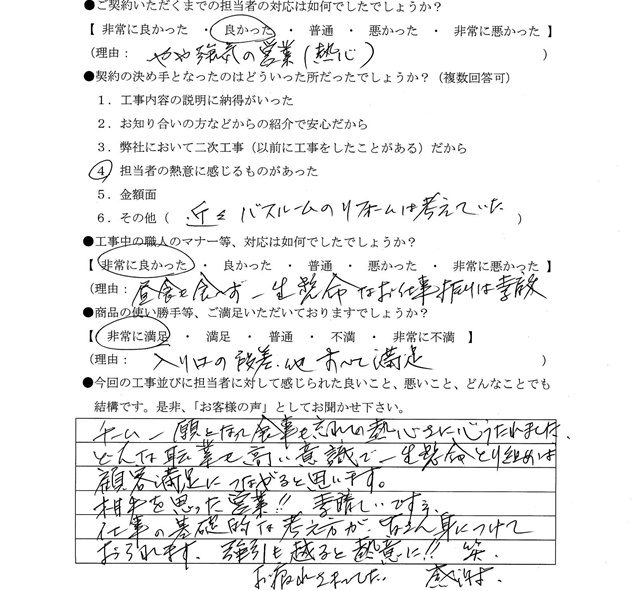 ●ご契約いただくまでの担当者の対応は如何でしたでしょうか？
【 非常に良かった ・ 良かった ・ 普通 ・ 悪かった ・ 非常に悪かった 】
（理由： やや強気の営業（熱心） ）
●契約の決め手となったのはどういった所だったでしょうか？（複数回答可）
１．工事内容の説明に納得がいった
２．お知り合いの方などからの紹介で安心だから
３．弊社において二次工事（以前に工事をしたことがある）だから
４ 担当者の熱意に感じるものがあった
５．金額面
６．その他（ 近々バスルームのリフォームは考えていた ）
●工事中の職人のマナー等、対応は如何でしたでしょうか？
【 非常に良かった ・ 良かった ・ 普通 ・ 悪かった ・ 非常に悪かった 】
（理由： 昼食も食べず一生懸命なお仕事振りは
●商品の使い勝手等、ご満足いただいておりますでしょうか？
【 非常に満足 ・ 満足 ・ 普通 ・ 不満 ・ 非常に不満 】
（理由： 入り口の段差、他すべて満足 ）
●今回の工事並びに担当者に対して感じられた良いこと、悪いこと、どんなことでも
結構です。是非、「お客様の声」としてお聞かせ下さい。
チーム一願となって食事も忘れの熱心さに心うたれました、
どんな職業も高い意識で一生懸命とり組めば
顧客満足につながると思います。
相手を思った営業!! 素晴しいですネ、
仕事の基礎的な考え方が、皆さん身につけて
おられます、強引も越ると熱意に!! 笑、
お疲れさまでした、 感謝、